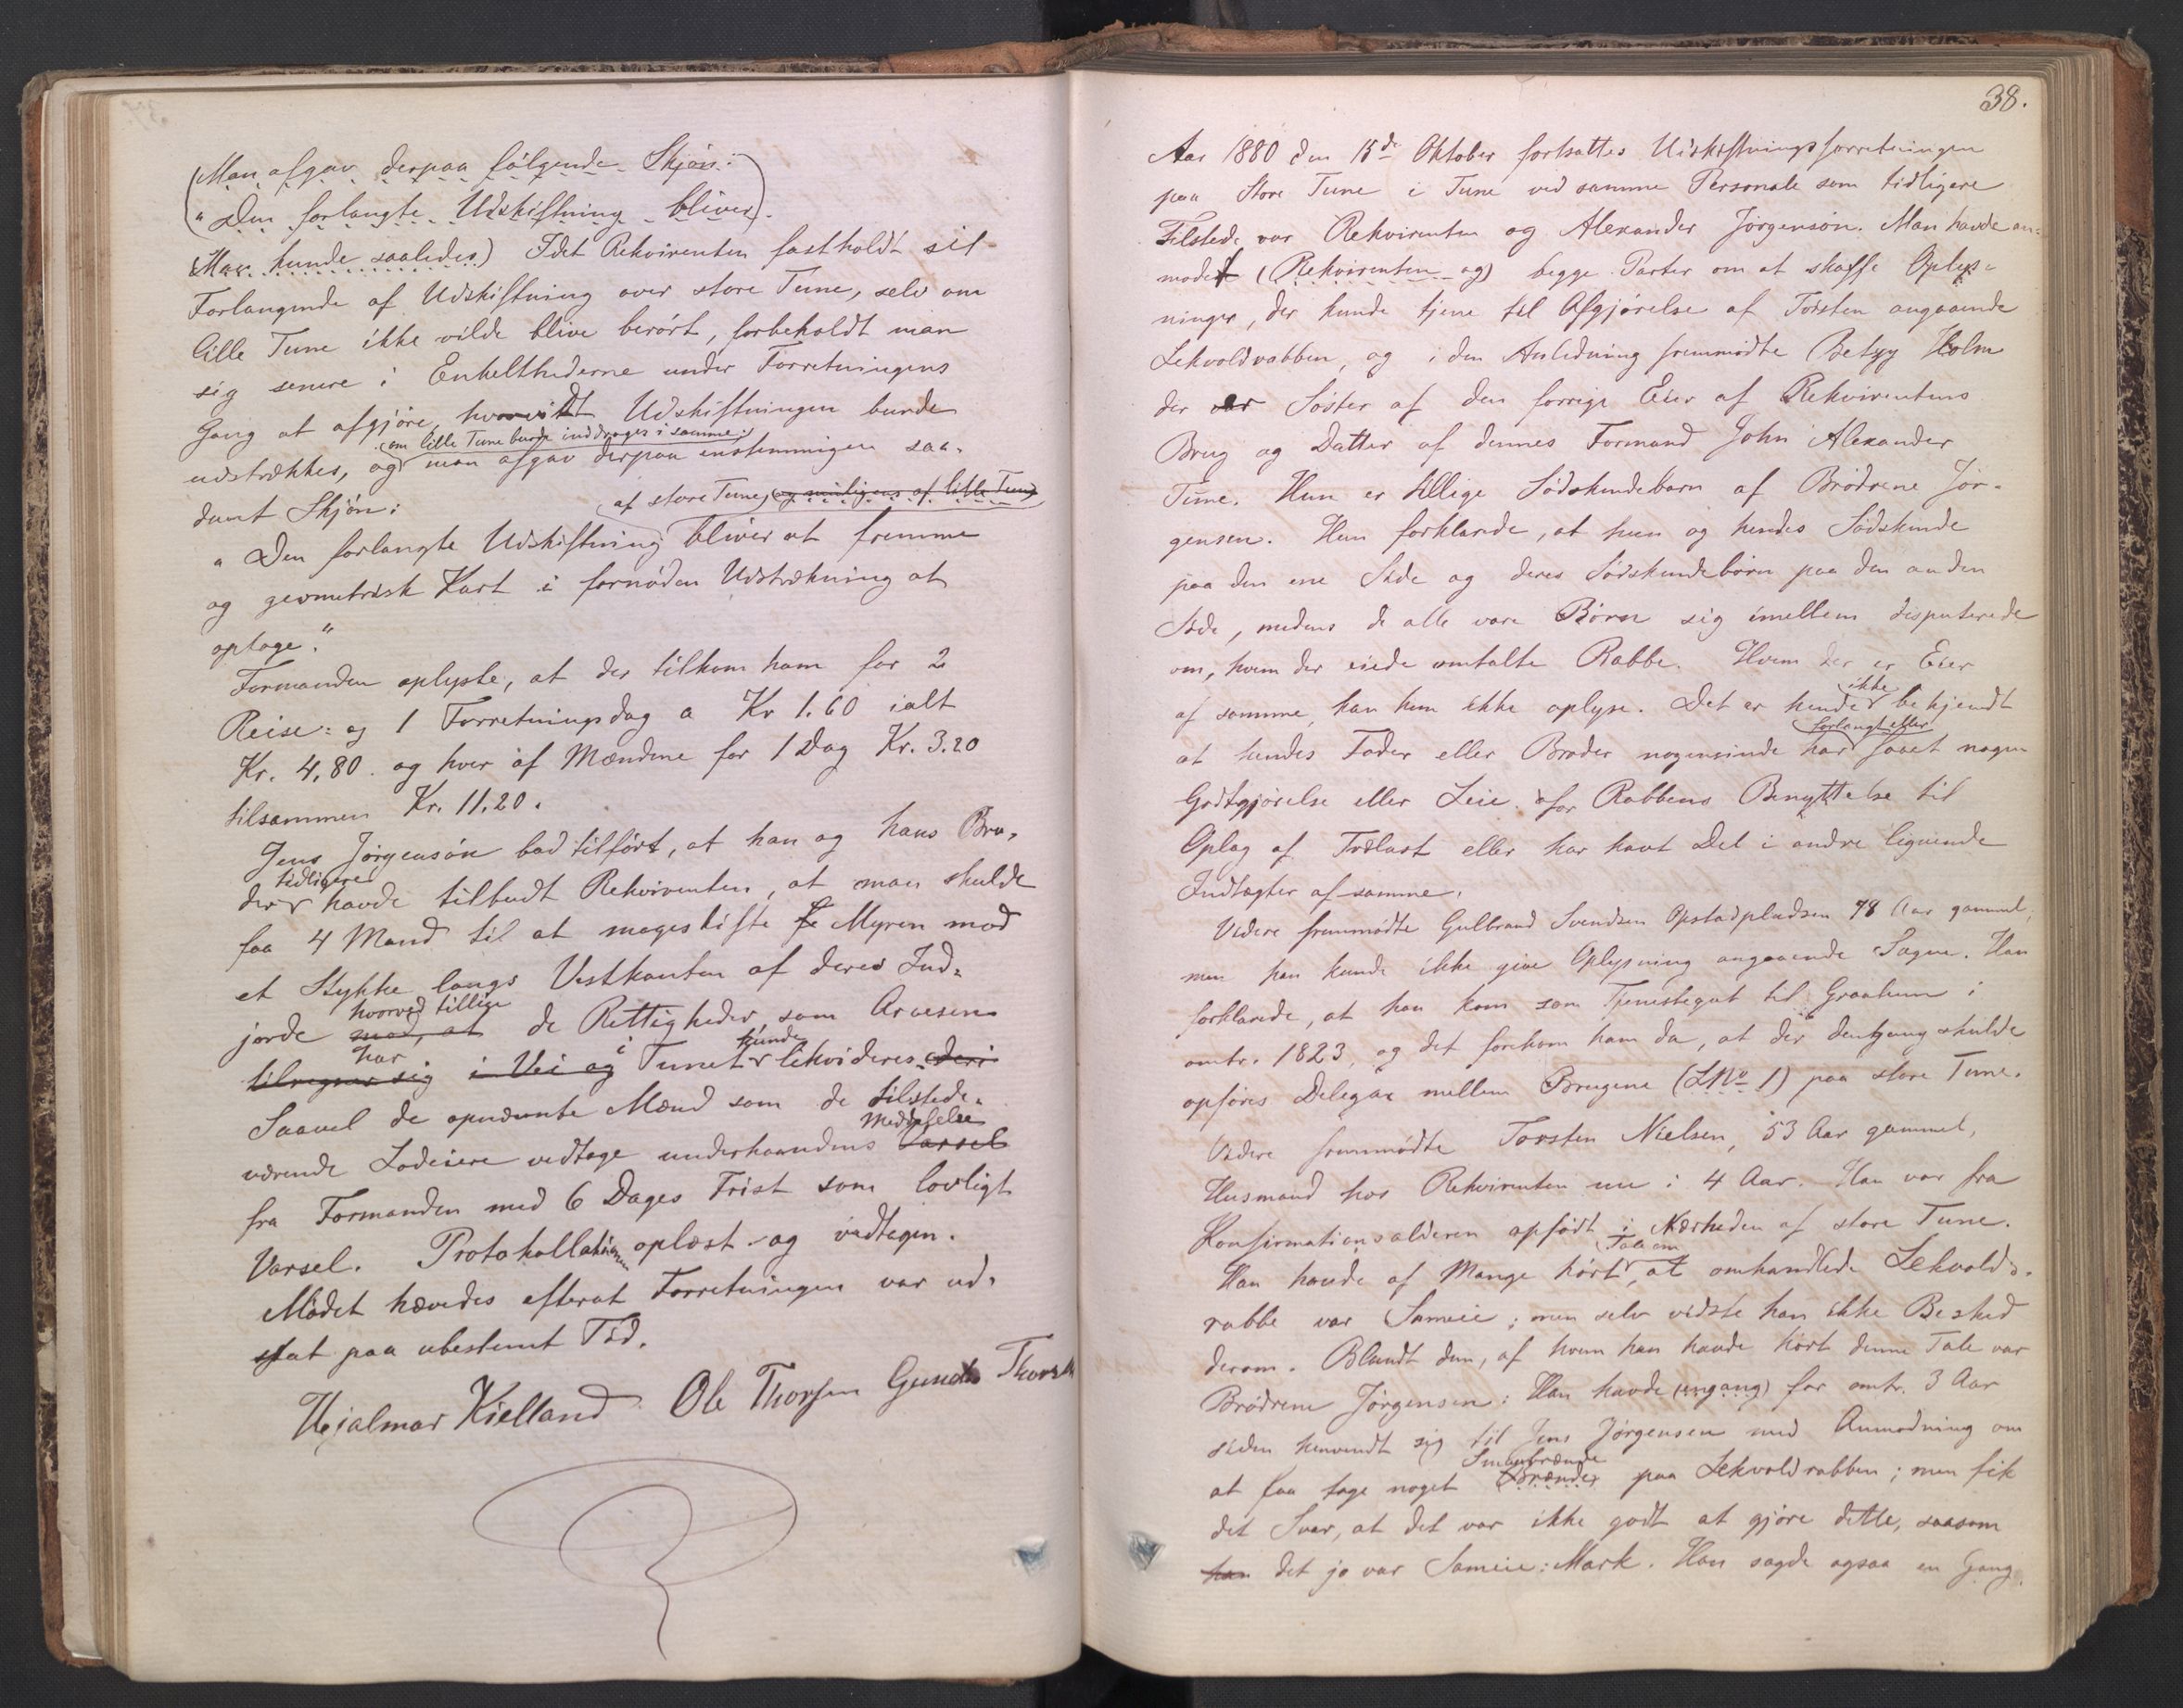 (Man afgav derpaa følgende Skjøn:
"Den forlangte Udskiftning bliver)
(Man kunde saaledes) Idet Rekvirenten fastholdt sit
Forlangende af Udskiftning over store Tune, selv om
lille Tune ikke vilde blive berørt, forbeholdt man
sig senere i Enkelthederne under Forretningens
Gang at afgjøre, hvorvidt Udskiftningen burde
(om lille Tune burde inddrages i samme)
udstrækkes, og man afgav derpaa enstemmigen saa-
dant Skjøn:
af store Tune, (og muligens af lille Tune)
"Den forlangte Udskiftning bliver at fremme
og geometrisk Kart i fornøden Udstrækning at
optage."
Formanden oplyste, at der tilkom ham for 2
Reise- og 1 Forretningsdag a Kr 1.60 ialt
Kr. 4,80. og hver af Mændene for 1 Dag Kr. 3.20
tilsammen Kr. 11.20.
Jens Jørgensøn bad tilført, at han og hans Bro-
tidligere
der havde tilbudt Rekvirenten, at man skulde
faa 4 Mand til at mageskifte Myren mod
et Stykke langs Vestkanten af deres Ind-
hvorved tillige
jorde mod, at de Rettigheder, som Arvesen
har i kunde
tilregner sig i Vei og Tunet likvideres deri
Saavel de opnævnte Mænd som de tilstede-
Meddelelse
værende Lodeiere vedtage underhaandens Varsel
fra Formanden med 6 Dages Frist som lovligt
Varsel. Protokollationen oplæst og vedtagen.
Mødet hævedes efterat Forretningen var ud-
sat paa ubestemt Tid.
Hjalmar Kielland Ole Thorsen
38.
Aar 1880 den 15de Oktober fortsattes Udskiftningsforretningen
paa Store Tune i Tune ved samme Personale som tidligere
Tilstede var Rekvirenten og Alexander Jørgensøn. Man havde an-
modet (Rekvirenten og) begge Parter om at skaffe Oplys-
ninger, der kunde tjene til Afgjørelse af Tvisten angaaende
Lekvoldrabben, og i den Anledning fremmødte Betzy Holm
der er Søster af den forrige Eier af Rekvirentens
Brug og Datter af dennes Formand John Alexander
Tune. Hun er tillige Sødskendebarn af Brødrene Jør-
gensen. Hun forklarede, at hun og hendes Sødskende
paa den ene Side og deres Sødskendebørn paa den anden
Side, medens de alle vare Børn sig imellem disputerede
om, hvem der eiede omtalte Rabbe. Hvem der er Eier
ikke
af samme, kan hun ikke oplyse. Det er hende bekjendt
forlangt eller
at hendes Fader eller Broder nogensinde har faaet nogen
Godtgjørelse eller Leie for Rabbens Benyttelse til
Oplag af Trælast eller har havt Del i andre lignende
Indtægter af samme.
Videre fremmødte Gulbrand Svendsen Opstadpladsen 78 Aar gammel,
men han kunde ikke give Oplysning angaaende Sagen. Han
forklarede, at han kom som Tjenestegut til Graalum i
omtr. 1823, og det forekom ham da, at der dengang skulde
opføres Delegar mellem Brugene (LNo 1) paa store Tune.
Videre fremmødte Torsten Nielsen, 53 Aar gammel,
Husmand hos Rekvirenten nu i 4 Aar. Han var fra
Konfirmationsalderen opfødt i Nærheden af store Tune.
Tale om
Han havde af Mange hørt, at omhandlede Lekvolds-
rabbe var Sameie; men selv vidste han ikke Besked
derom. Blandt dem, af hvem han havde hørt denne Tale var
Brødrene Jørgensen: Han havde (engang) for omtr. 3 Aar
siden henvendt sig til Jens Jørgensen med Anmodning om
Smaabrænde
at faa tage noget (Brænde) paa Lekvoldrabben; men fik
det Svar, at det var ikke godt at gjøre dette, saasom
han det jo var Sameie-Mark. Han sagde ogsaa en Gang